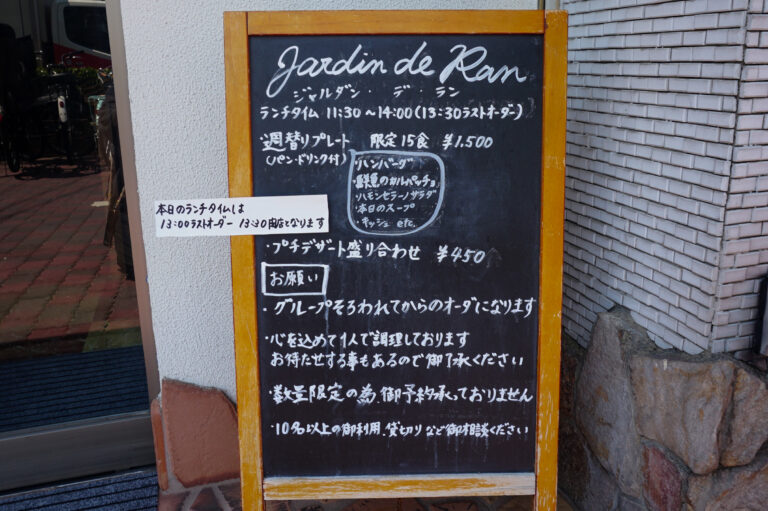 Jardin de Ran
ジャルダン・デ・ラン
ランチタイム 11:30～14:00(13:30ラストオーダー)
・週替りプレート 限定15食 ¥1.500
(パン・ドリンク付)
・ハンバーグ
・鮮魚のカルパッチョ
・ハモンセラーノサラダ
・本日のスープ
・キッシュ etc.
本日のランチタイムは
13:00ラストオーダー 13:30閉店となります
・プチデザート盛り合わせ ¥450
お願い
・グループそろわれてからのオーダになります
・心を込めて1人で調理しております
お待たせする事もあるので御了承ください
・数量限定の為、御予約承っておりません
・10名以上の御利用、貸切りなど御相談ください